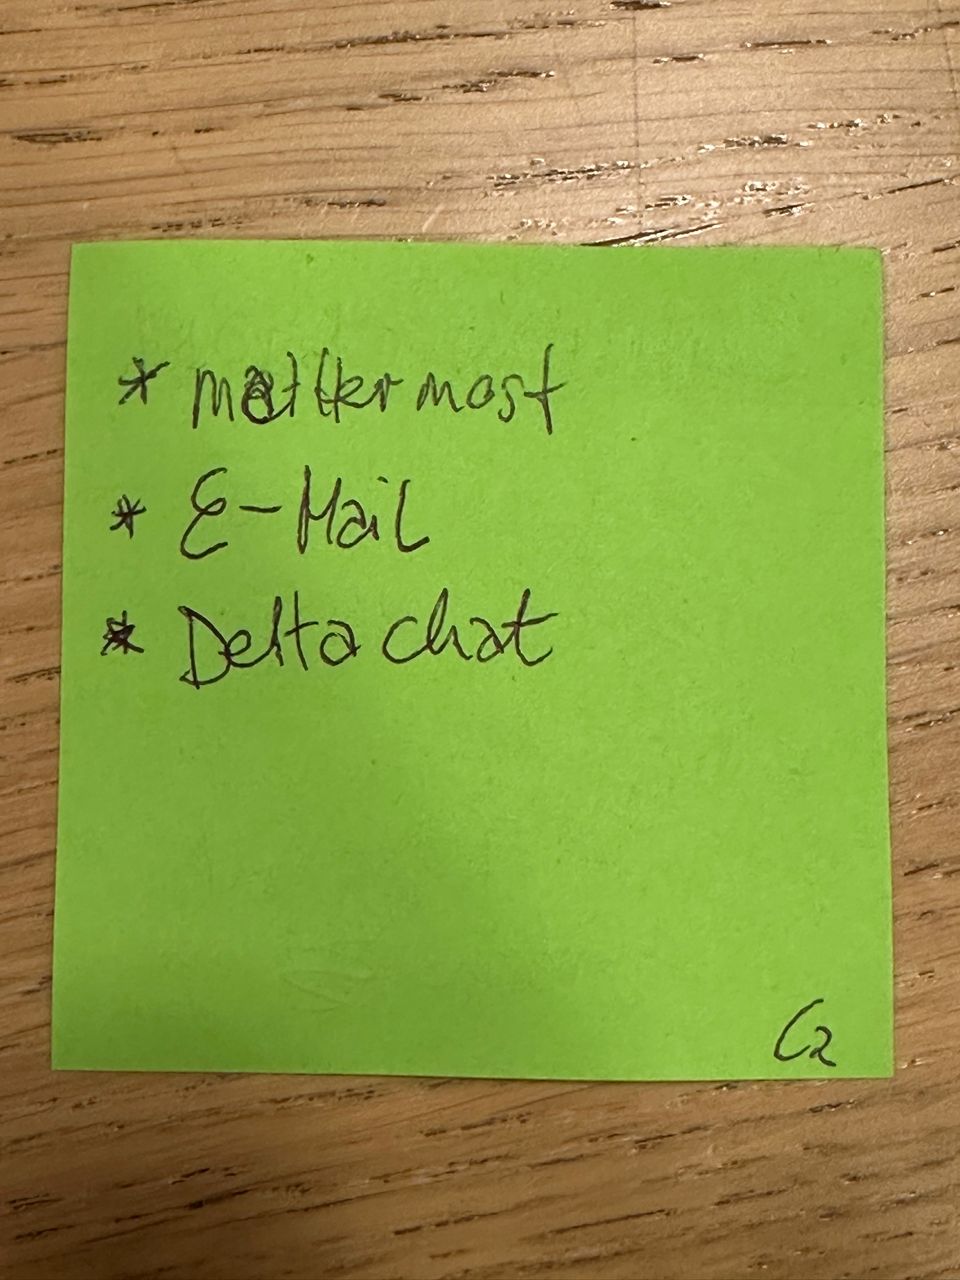 * mattermost
* E-Mail
* Delta chat
C2